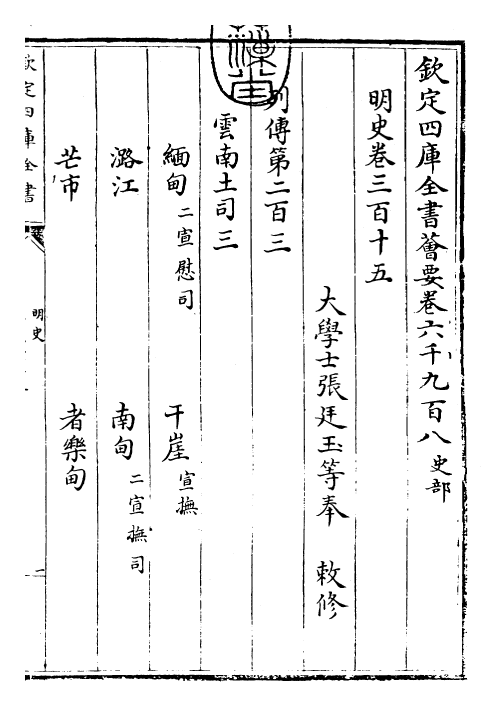 欽定四庫全書薈要卷六千九百八 史部
明史卷三百十五
大學士張廷玉等奉 敕修
列傳第二百三
雲南土司三
緬甸 二宣慰司 干崖 宣撫
潞江 南甸 二宣撫司
芒市 者樂甸
欽定四庫全書
明史
一